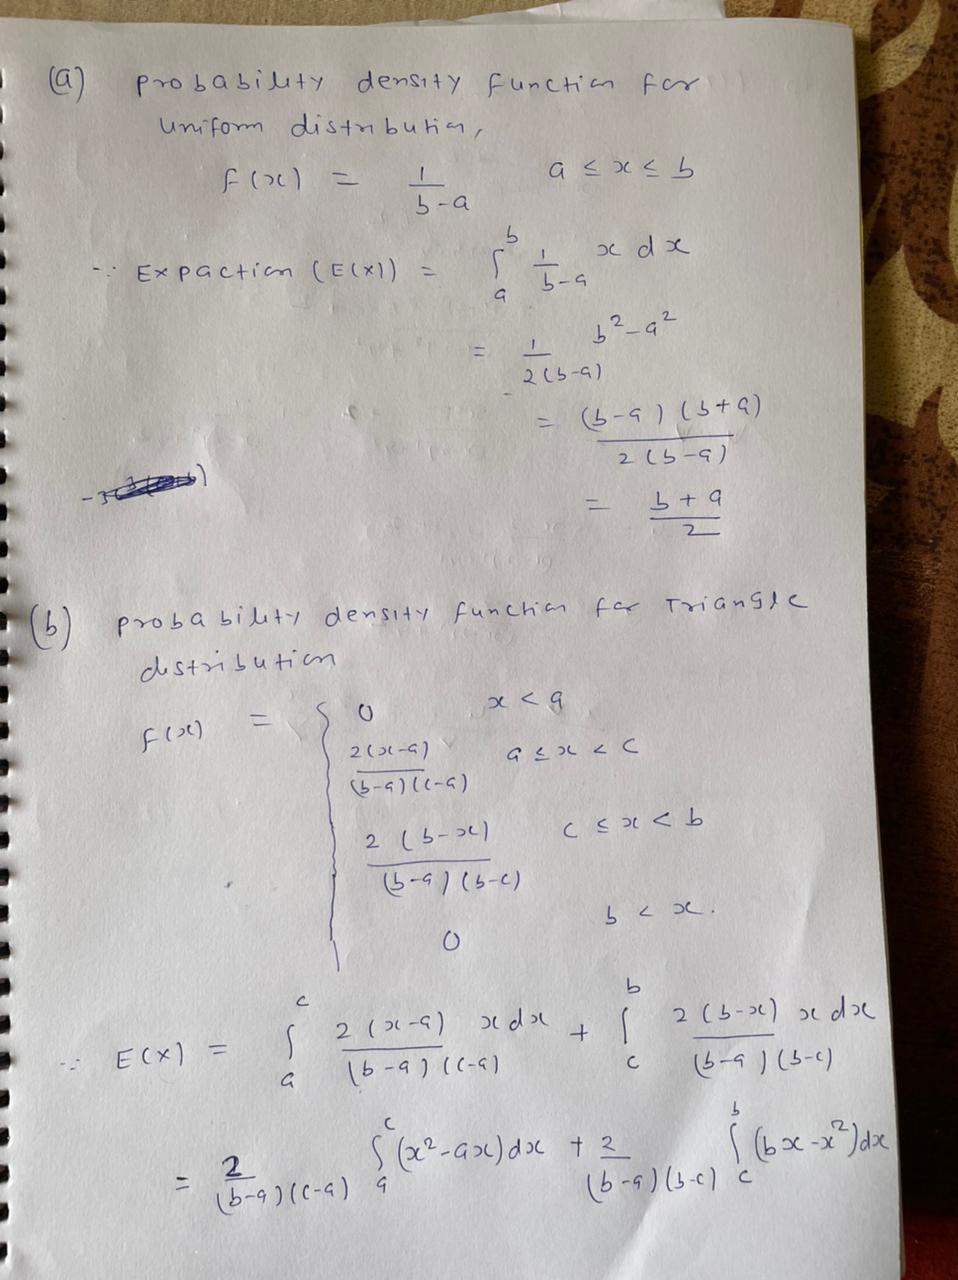 (a) probability density function for
uniform distribution,
f(x) = 1/(b-a) a ≤ x ≤ b
∵ Expaction (E(x)) = ∫_a^b 1/(b-a) x dx
= 1/(2(b-a)) b²-a²
= (b-a)(b+a)/(2(b-a))
= (b+a)/2
(b) probability density function for Triangle
distribution
f(x) = { 0 x < a
2(x-a)/((b-a)(c-a)) a ≤ x < c
2(b-x)/((b-a)(b-c)) c ≤ x < b
0 b < x.
∵ E(x) = ∫_a^c 2(x-a)/((b-a)(c-a)) x dx + ∫_c^b 2(b-x)/((b-a)(b-c)) x dx
= 2/((b-a)(c-a)) ∫_a^c (x²-ax)dx + 2/((b-a)(b-c)) ∫_c^b (bx-x²)dx